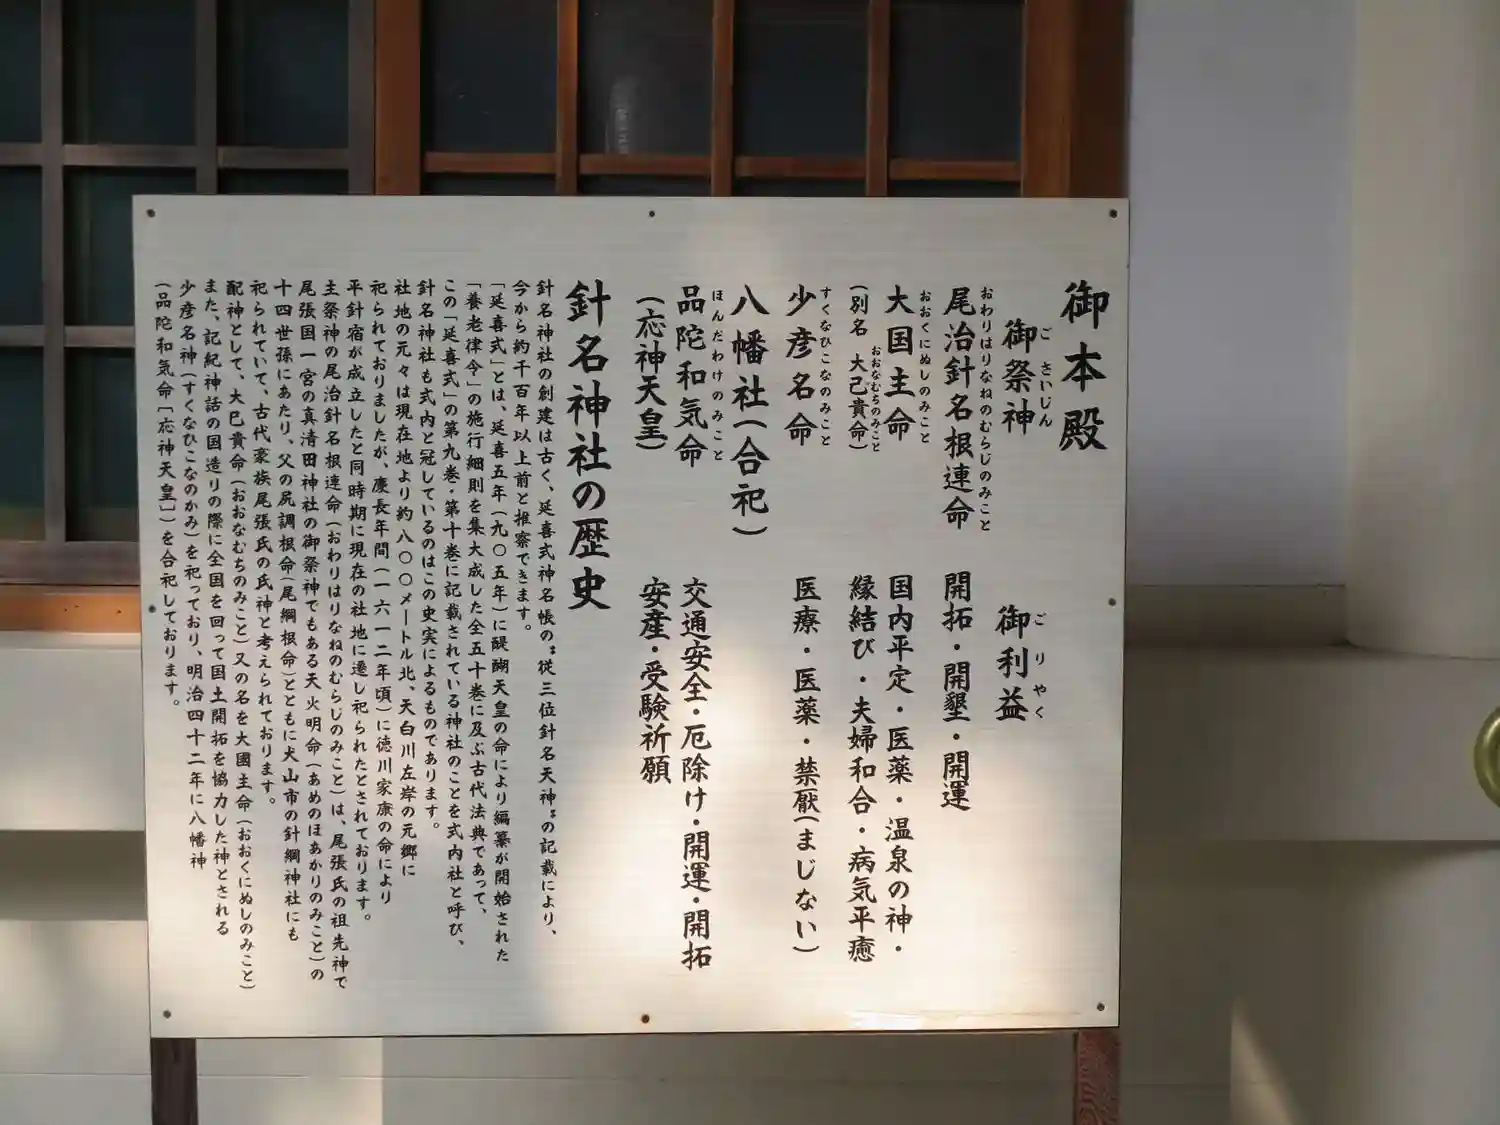 御本殿
御祭神
ごさいじん
御利益
ごりやく
尾治針名根連命
おわりはりなねのむらじのみこと
開拓・開墾・開運
大国主命
おおくにぬしのみこと
(別名 大己貴命)
おおなむちのみこと
国内平定・医薬・温泉の神・
縁結び・夫婦和合・病気平癒
少彦名命
すくなひこなのみこと
医療・医薬・禁厭(まじない)
八幡社(合祀)
品陀和気命
ほんだわけのみこと
(応神天皇)
交通安全・厄除け・開運・開拓
安産・受験祈願
針名神社の歴史
針名神社の創建は古く、延喜式神名帳の〝従三位針名天神〟の記載により、
今から約千百年以上前と推察できます。
「延喜式」とは、延喜五年(九〇五年)に醍醐天皇の命により編纂が開始された
「養老律令」の施行細則を集大成した全五十巻に及ぶ古代法典であって、
この「延喜式」の第九巻・第十巻に記載されている神社のことを式内社と呼び、
針名神社も式内と冠しているのはこの史実によるものであります。
社地の元々は現在地より約八〇〇メートル北、天白川左岸の元郷に
祀られておりましたが、慶長年間(一六一二年頃)に徳川家康の命により
平針宿が成立したと同時期に現在の社地に遷し祀られたとされております。
主祭神の尾治針名根連命(おわりはりなねのむらじのみこと)は、尾張氏の祖先神で
尾張国一宮の真清田神社の御祭神でもある天火明命(あめのほあかりのみこと)の
十四世孫にあたり、父の尻調根命(尾綱根命)とともに犬山市の針綱神社にも
祀られていて、古代豪族尾張氏の氏神と考えられております。
配神として、大巳貴命(おおなむちのみこと)又の名を大國主命(おおくにぬしのみこと)
また、記紀神話の国造りの際に全国を回って国土開拓を協力した神とされる
少彦名神(すくなひこなのかみ)を祀っており、明治四十二年に八幡神
(品陀和気命[応神天皇])を合祀しております。